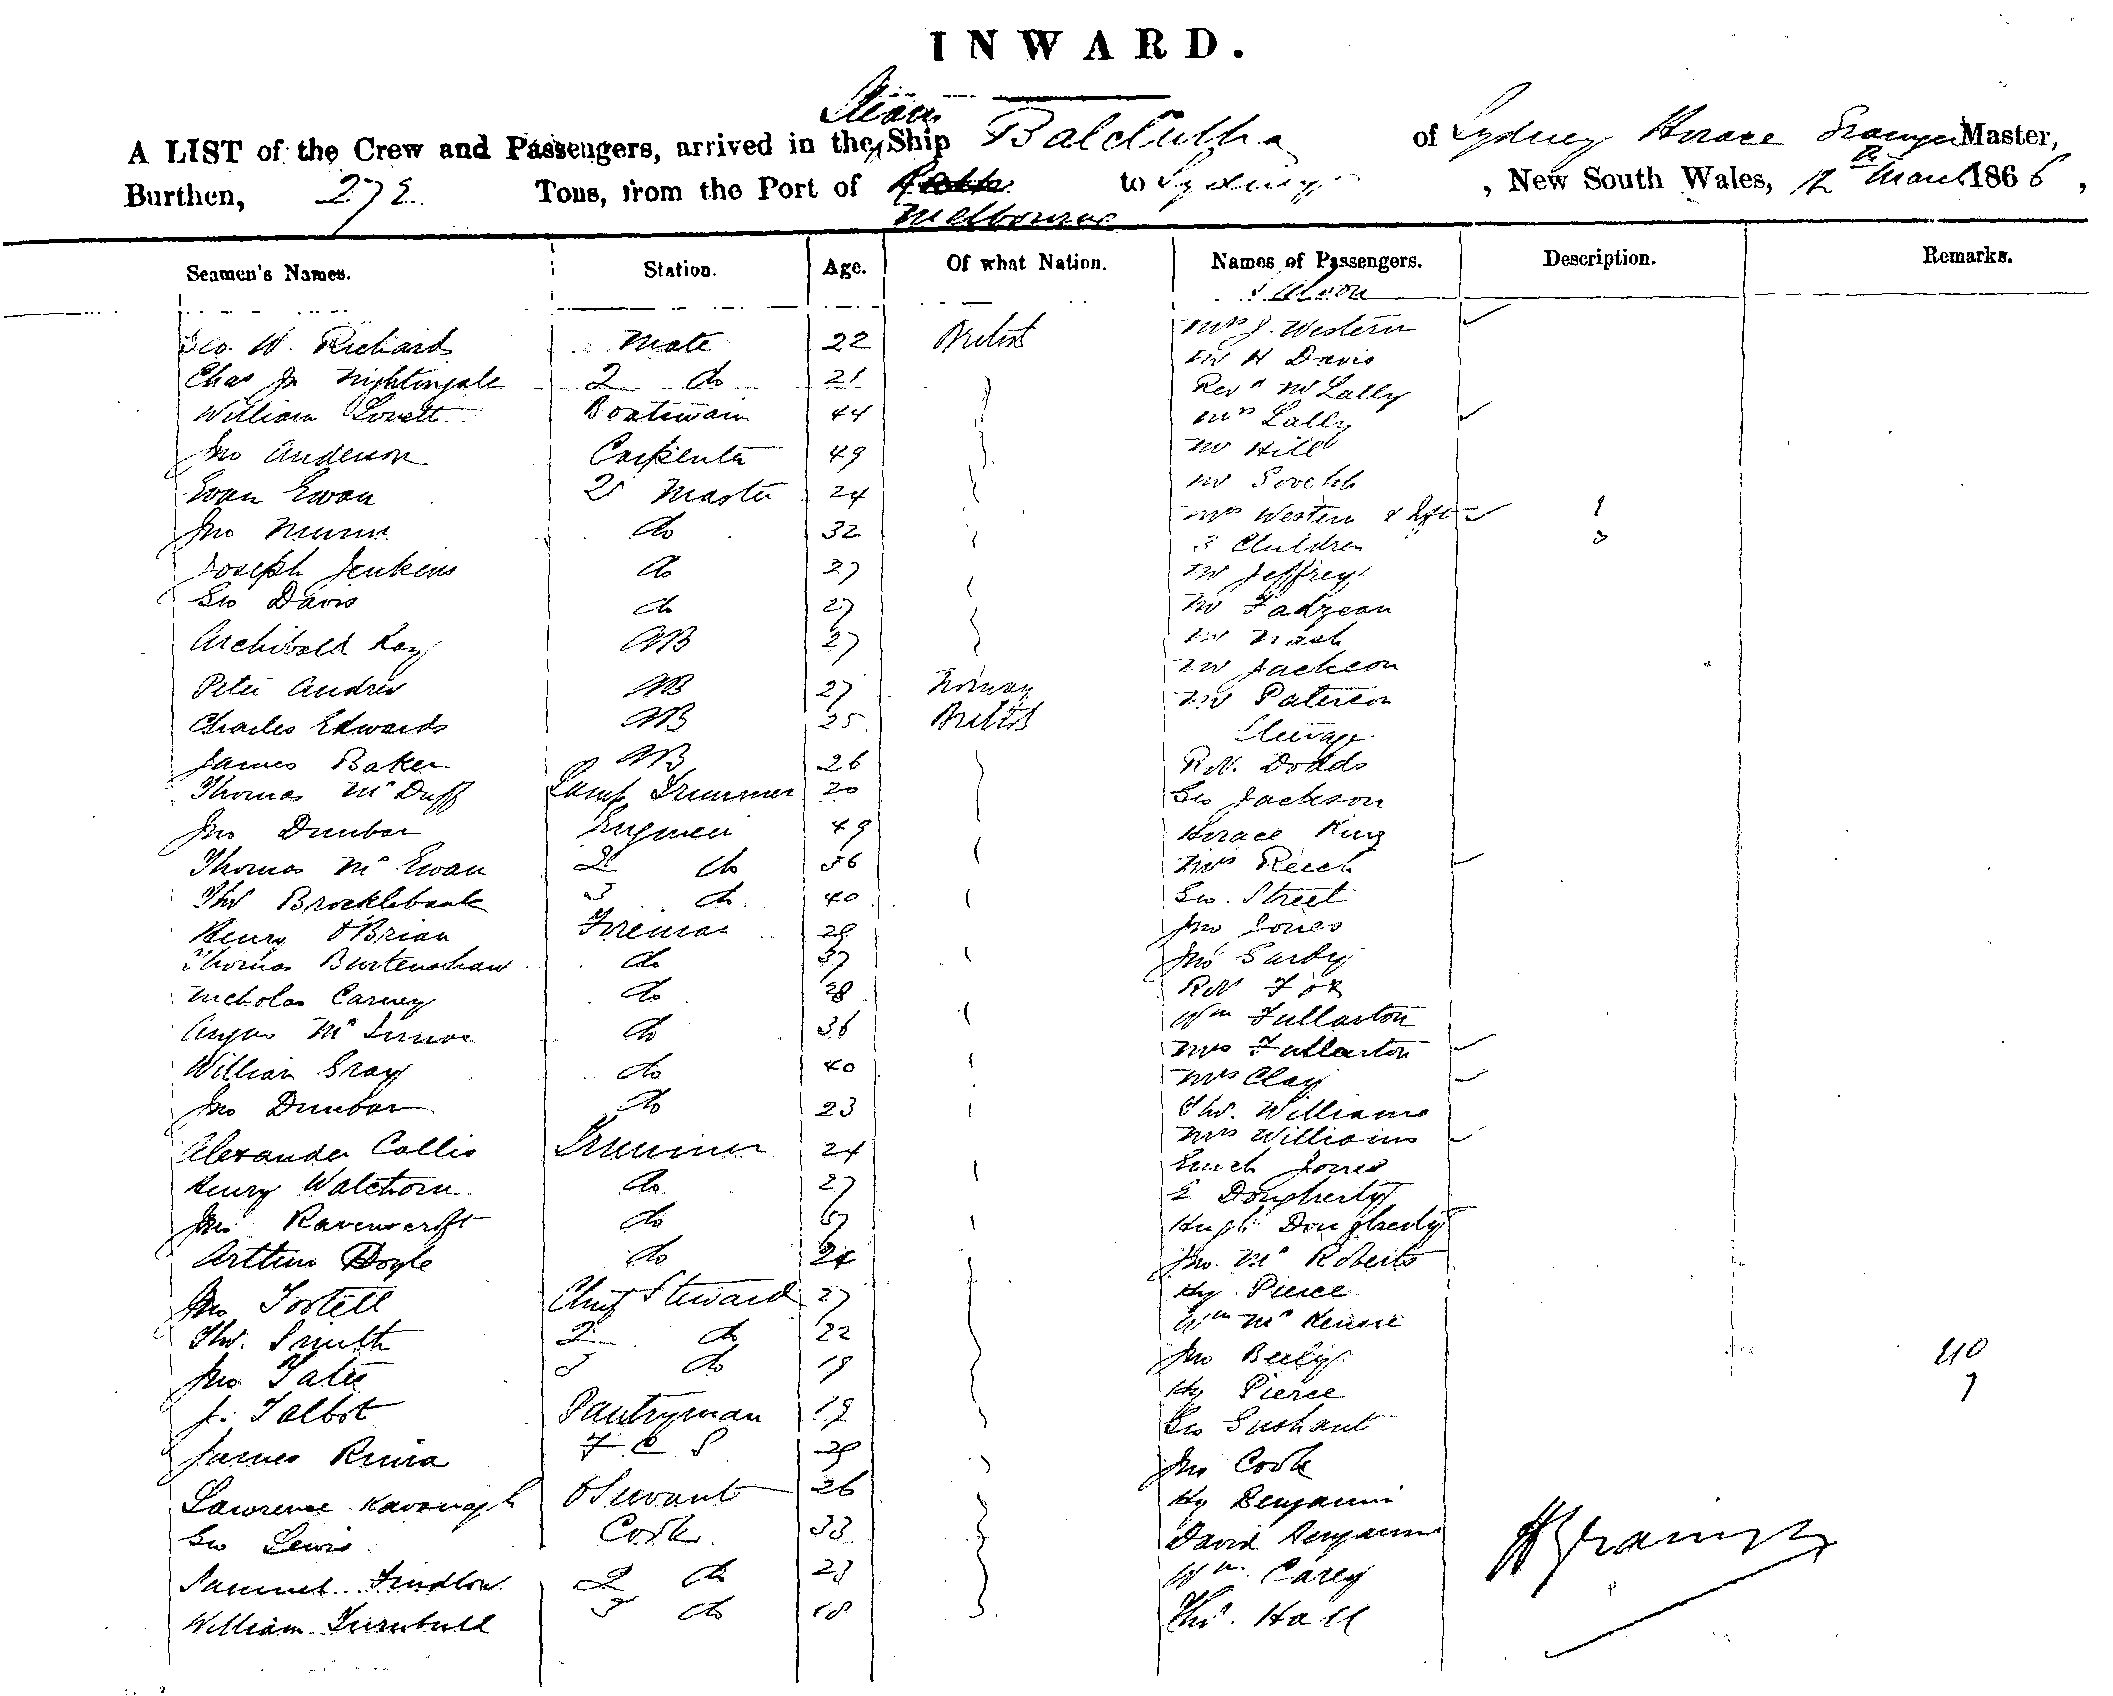 INWARD.
Steam
A LIST of the Crew and Passengers, arrived in the Ship Balclutha of Sydney Horace Grainger Master,
Burthen, 272 Tons, from the Port of to Sydney, New South Wales, 12th March 1866,
Melbourne
Seamen's Names. Station. Age. Of what Nation. Names of Passengers. Description. Remarks.
Saloon
Geo. W. Richards Mate 22 British Mrs J. Western
Chas Jn Nightingale 2 do 21 Mr H Davis
William Lovett Boatswain 44 Revd Mr Lally
Jno Anderson Carpenter 49 Mrs Lally
Evan Ewan 2r Master 24 Mr Hill
Jno Munn do 32 Mr
Joseph Jenkins do 27 Mrs Western & 1
Geo Davis do 27 3 Children 3
Archibald Kay AB 27 Mr Jeffrey
Peter Andres AB 27 Norway Mr Fadzean
Charles Edwards AB 25 British Mr Nash
James Baker AB 26 Mr Jackson
Thomas Mc Duff Lamp Trimmer 20 Mr Paterson
Jno Dunbar Engineer 49 Steerage
Thomas Mc Ewan 2 do 36 R.N. Dodds
Tho Brocklebank 3 do 40 Geo Jackson
Henry O'Brian Fireman 28 Horace King
Thomas Burtenshaw do 37 Mrs Reech
Nicholas Carney do 28 Geo. Street
Angus Mc Innes do 36 Jno Jones
William Gray do 40 Jno Darby
Jno Dunbar do 23 Fox
Alexander Collis Trimmer 24 Wm Fullarton
Henry Walthorn do 27 Mrs Fullarton
Jno Ravenscroft do Mrs Clay
Arthur Doyle do 24 Tho. Williams
Jno Tostell Chief Steward 27 Mrs Williams
Tho. Smith 2 do 22 Enoch Jones
Jno Yates 3 do 19 E Dougherty
J. Talbot Pantryman 19 Hugh Dougherty
James F C S 29 Jno. Mc Roberts
Lawrence Kavanagh O Servant 26 Hy Pierce
Geo Lewis Cook 33 Wm Mc Kensie
Samuel Findlow 2 do 23 Jno Beely
William Turnbull 3 do 18 Hy Pierce
Geo
Jno Cook
Hy Benjamin
David Benjamin
Wm Carey
Tho. Hall
40
7
H Grainger